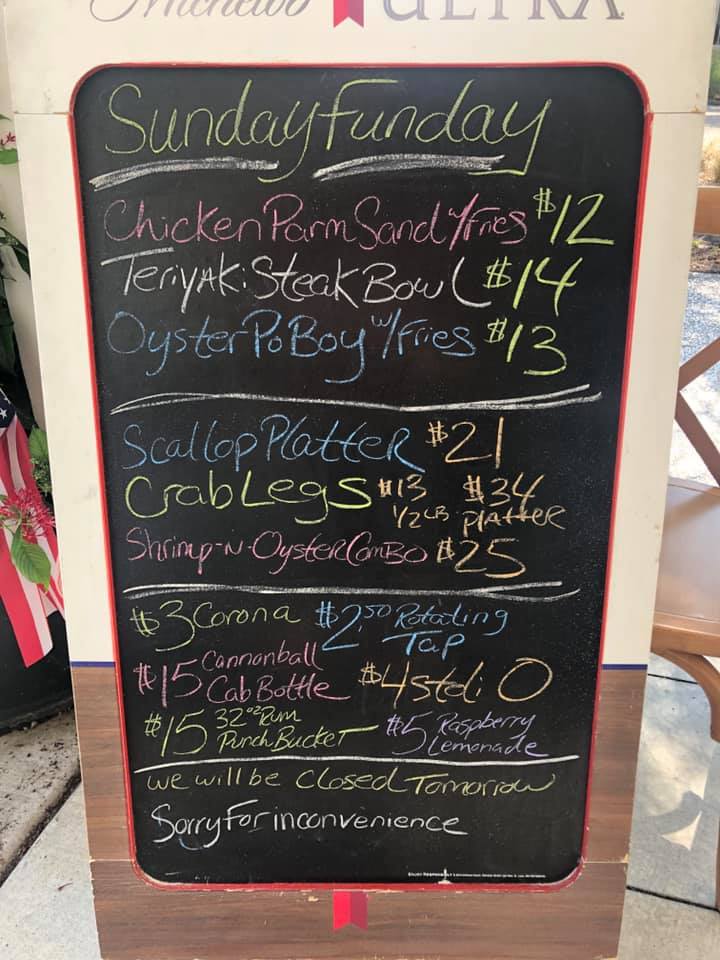 Michelob ULTRA
Sunday Funday
Chicken Parm Sand w/Fries $12
Teriyaki Steak Bowl $14
Oyster Po Boy w/Fries $13
Scallop Platter $21
Crab Legs $13 $34
1/2 LB Platter
Shrimp-N-Oyster Combo $25
$3 Corona $2.50 Rotating
Tap
$15 Cannonball
Cab Bottle $4 Stoli O
$15 32oz Rum
Punch Bucket $5 Raspberry
Lemonade
we will be Closed Tomorrow
Sorry For inconvenience